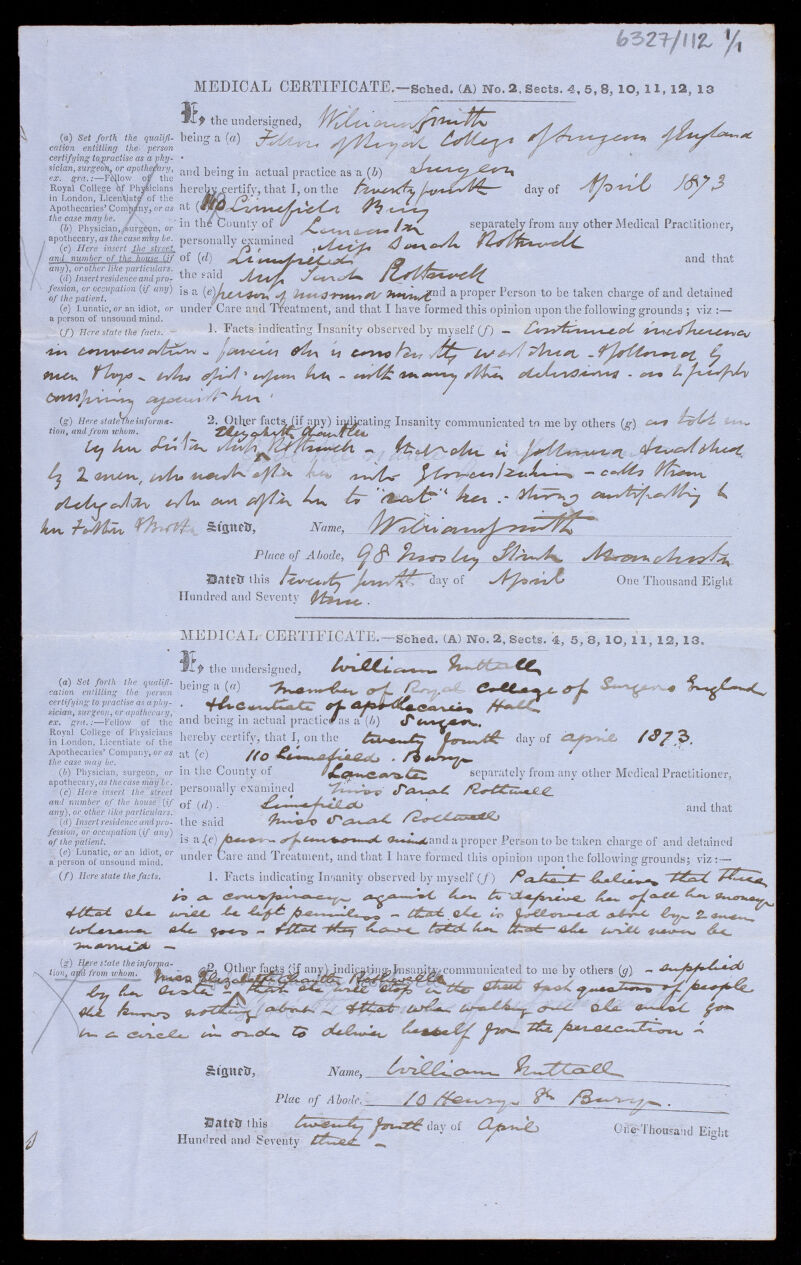 6327/112 1/1
MEDICAL CERTIFICATE.—Sched. (A) No. 2, Sects. 4, 5, 8, 10, 11, 12, 13
I, the undersigned, William Smith
being a (a) Fellow of Royal College of Surgeons of England
and being in actual practice as a (b) Surgeon
hereby certify, that I, on the twenty fourth day of April 1873
at (c) 110 Limefield Bury
in the County of Lancaster separately from any other Medical Practitioner,
personally examined Miss Sarah Rothwell
of (d) Limefield and that
the said Miss Sarah Rothwell
is a (e) person of unsound mind and a proper Person to be taken charge of and detained
under Care and Treatment, and that I have formed this opinion upon the following grounds; viz:—
(a) Set forth the qualifi-
cation entitling the person
certifying to practise as a phy-
sician, surgeon, or apothecary,
ex. gra.:—Fellow of the
Royal College of Physicians
in London, Licentiate of the
Apothecaries' Company, or as
the case may be.
(b) Physician, surgeon, or
apothecary, as the case may be.
(c) Here insert the street
and number of the house (if
any), or other like particulars.
(d) Insert residence and pro-
fession, or occupation (if any)
of the patient.
(e) Lunatic, or an idiot, or
a person of unsound mind.
(f) Here state the facts.
1. Facts indicating Insanity observed by myself (f) – Continued incoherence
in conversation – fancies she is constantly watched – & followed by
men & boys – who spit upon her – with many other delusions – as to people
conspiring against her.
(g) Here state the informa-
tion, and from whom.
2. Other facts (if any) indicating Insanity communicated to me by others (g) as told me
Elizabeth Chantler
by her Sister Miss Rothwell – that she is followed & watched
by 2 men, who went after her into Gloucestershire – calls them
delegates who are after her to "rat" her. – strong antipathy to
her Father & Brother
Signed, Name, William Smith
Place of Abode, 98 Mosley Street Manchester
Dated this twenty fourth day of April One Thousand Eight
Hundred and Seventy three.
MEDICAL CERTIFICATE.—Sched. (A) No. 2, Sects. 4, 5, 8, 10, 11, 12, 13.
I, the undersigned, William Nuttall
being a (a) member of Royal College of Surgeons England
& licentiate of apothecaries Hall
and being in actual practice as a (b) Surgeon
hereby certify, that I, on the twenty fourth day of april 1873.
at (c) 110 Limefield . Bury
in the County of Lancaster separately from any other Medical Practitioner,
personally examined Miss Sarah Rothwell
of (d) . Limefield and that
the said Miss Sarah Rothwell
is a (e) person of unsound mind and a proper Person to be taken charge of and detained
under Care and Treatment, and that I have formed this opinion upon the following grounds; viz:—
(a) Set forth the qualifi-
cation entitling the person
certifying to practise as a phy-
sician, surgeon, or apothecary,
ex. gra.:—Fellow of the
Royal College of Physicians
in London, Licentiate of the
Apothecaries' Company, or as
the case may be.
(b) Physician, surgeon, or
apothecary, as the case may be.
(c) Here insert the street
and number of the house (if
any), or other like particulars.
(d) Insert residence and pro-
fession, or occupation (if any)
of the patient.
(e) Lunatic, or an idiot, or
a person of unsound mind.
(f) Here state the facts.
1. Facts indicating Insanity observed by myself (f) Patient believes that there
is a conspiracy against her to deprive her of all her money
& that she will be left penniless – that she is followed about by 2 men
wherever she goes – & that they have told her that she will never be
married –
(g) Here state the informa-
tion, and from whom.
2. Other facts (if any) indicating Insanity communicated to me by others (g) – supplied
Miss Elizabeth Chantler Rothwell
by her sister – that she will stop in the street & ask questions of people
she knows nothing about – & that when walking out she must go
in a circle in order to deliver herself from the persecution –
Signed, Name, William Nuttall
Plac of Abode. 10 Henry St Bury.
Dated this twenty fourth day of April One Thousand Eight
Hundred and Seventy three –